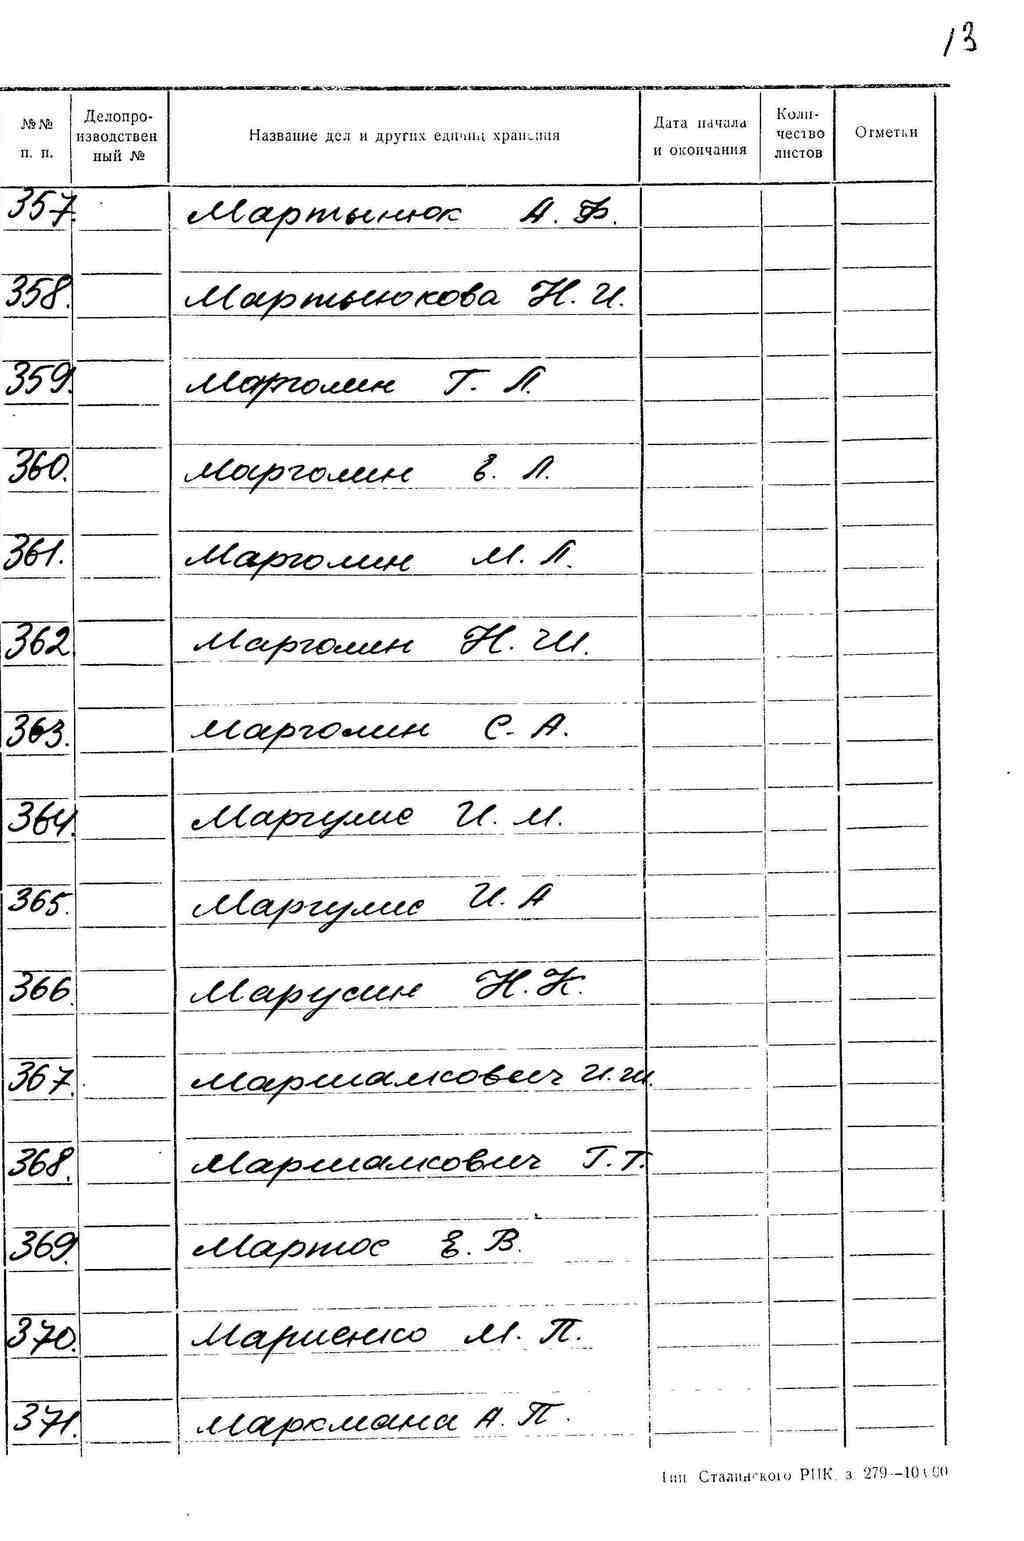 13
№№ п. п. Делопроизводствен ный № Название дел и других единиц хранения Дата начала и окончания Количество листов Отметки
357. Мартынюк А. Ф.
358. Мартынюкова Н. И.
359. Марголин Г. Л.
360. Марголин Е. Л.
361. Марголин М. Л.
362 Марголин Н. Ш.
363. Марголин С. А.
364. Маргулис И. М.
365. Маргулис И. А
366. Марусин Н. К.
367. Маршалкович И. Ш.
368. Маршалкович Г. Т.
369. Мартос Е. В.
370. Мариенко М. П.
371. Маркмана А. П.
Тип Сталинского РИК, з 279—